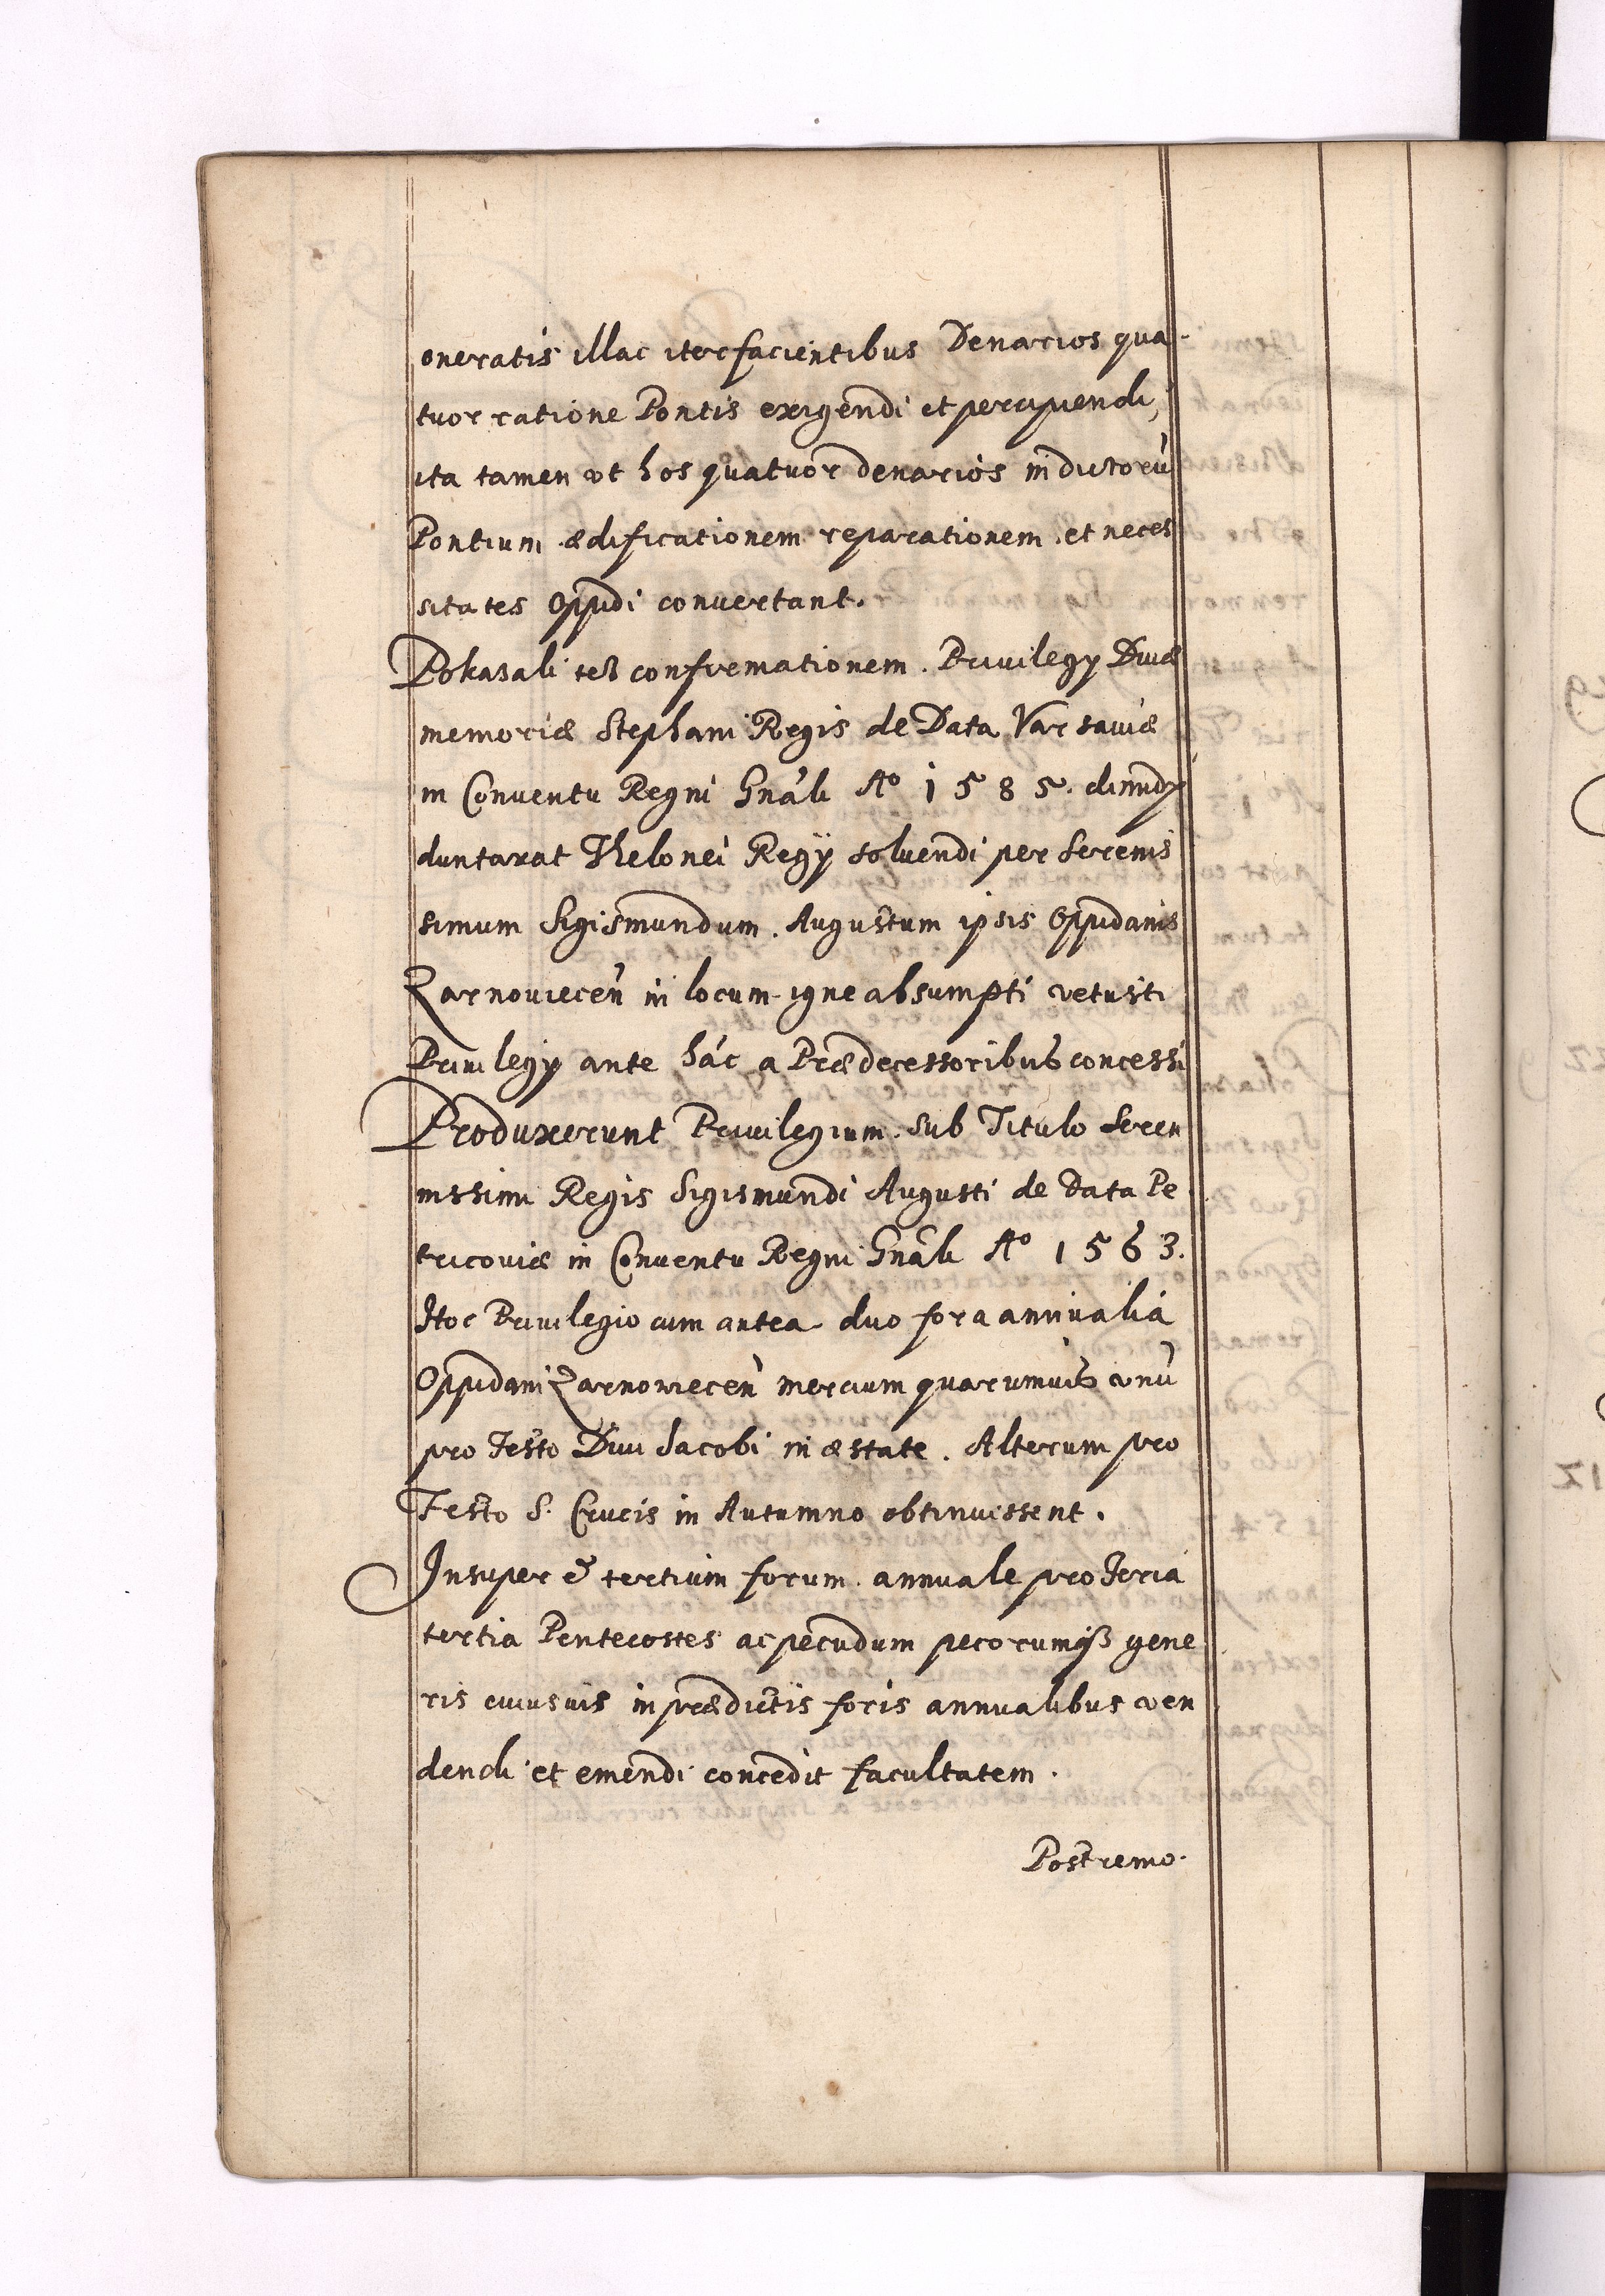 oneratis illac iter facientibus Denarios qua-
tuor ratione Pontis exigendi et percipiendi,
ita tamen vt hos quatuor denarios in dictorũ
Pontium ædificationem reparationem et neces
sitates Oppidi conuertant.
Pokasali tesz confirmationem Priuilegy Diuæ
memoriæ Stephani Regis de Data Varsauiæ
in Conuentu Regni Gnãli Aº 1585.
duntaxat Thelonei Regÿ soluendi per Serenis
simum Sigismundum Augustum ipsis Oppidanis
Zarnouiecen̄ in locum igne absumpti vetusti
Priuilegÿ ante hác a Prædecessoribus concessi
Produxerunt Priuilegium sub Titulo Seren
nissimi Regis Sigismundi Augusti de Data Pe
tricouiæ in Conuentu Regni Gnãli Aº 1563.
Hoc Priuilegio cum antea duo fora annualia
Oppidani Zarnowiecen̄ mercium quarumuis vnũ
pro Festo Diui Jacobi in æstate. Alterum pro
Festo S. Crucis in Autumno obtinuissent.
Insuper & tertium forum annuale pro Feria
tertia Pentecostes ac pecudum pecorumqȝ gene
ris cuiusuis in prædictis foris annualibus ven
dendi et emendi concedit facultatem.
Postremo.